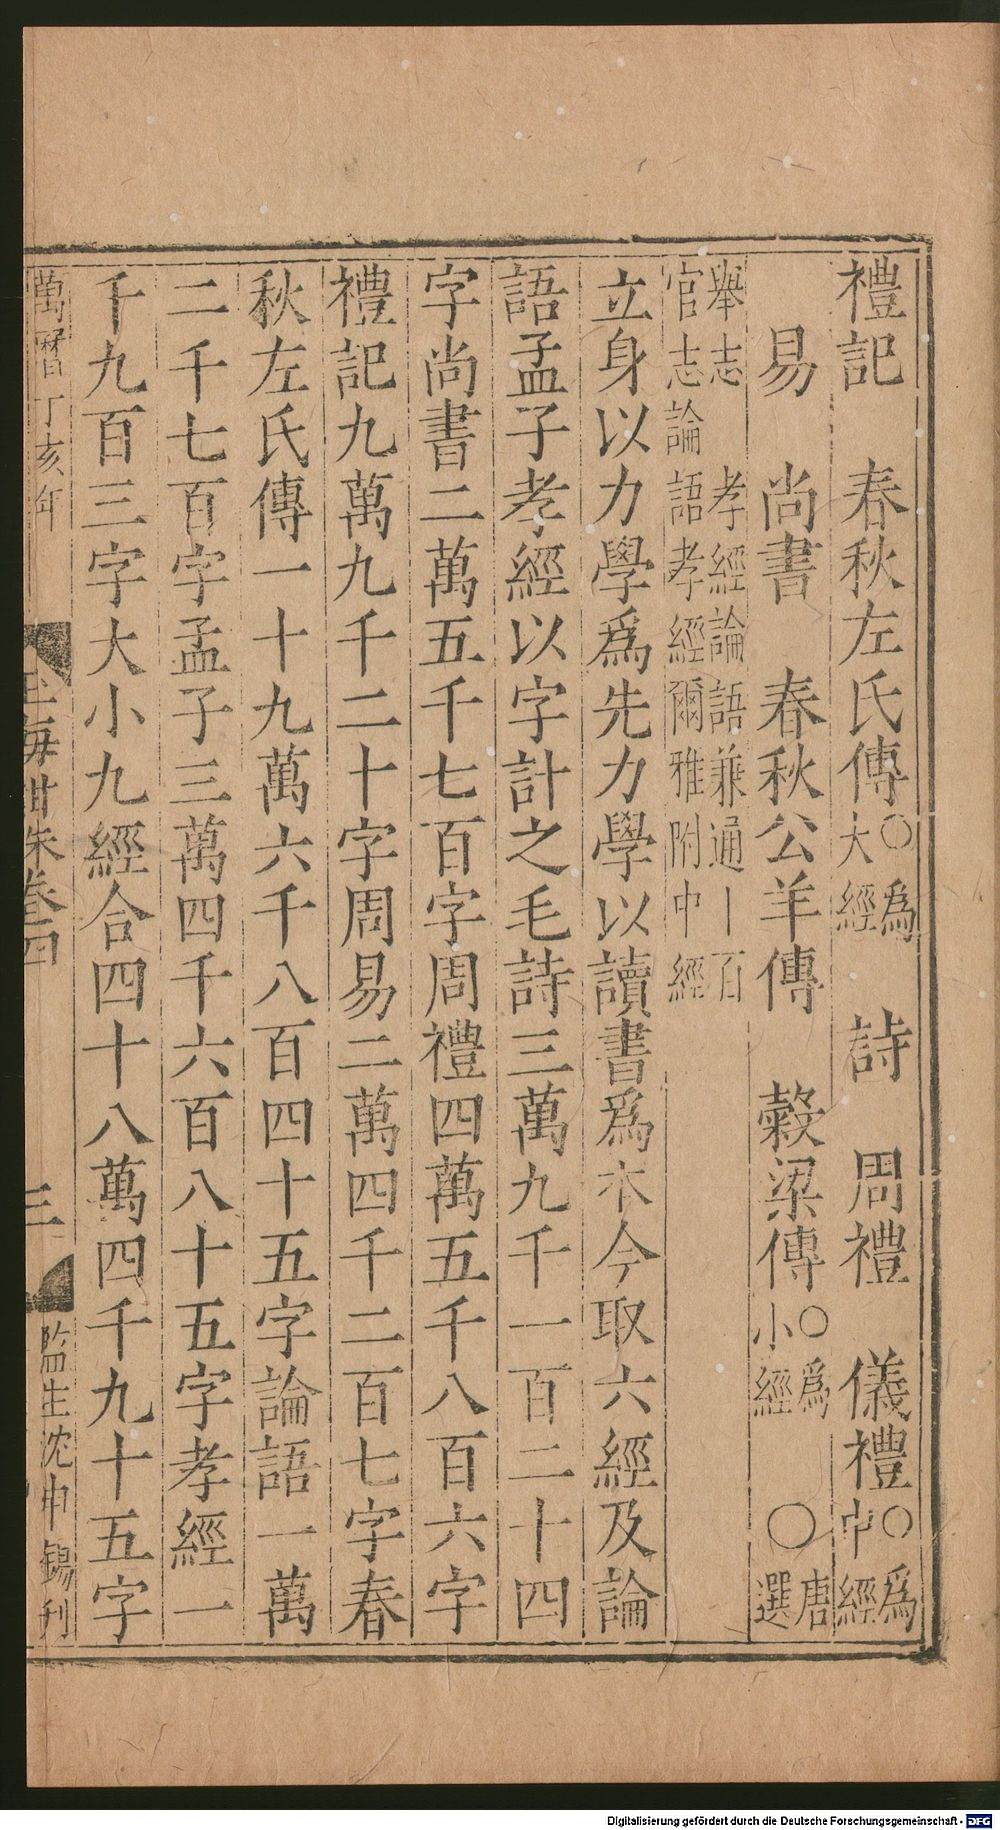 禮記　春秋左氏傳○爲大經　詩　周禮　儀禮○爲中經
易　尚書　春秋公羊傳　糓梁傳○爲小經　○唐選
舉志　孝經論語兼通一百
官志論語孝經爾雅附中經
立身以力學爲先力學以讀書爲本今取六經及論
語孟子孝經以字計之毛詩三萬九千一百二十四
字尚書二萬五千七百字周禮四萬五千八百六字
禮記九萬九千二十字周易二萬四千二百七字春
秋左氏傳一十九萬六千八百四十五字論語一萬
二千七百字孟子三萬四千六百八十五字孝經一
千九百三字大小九經合四十八萬四千九十五字
萬曆丁亥年
玉海紺朱卷四
三
監生沈申錫刊
Digitalisierung gefördert durch die Deutsche Forschungsgemeinschaft - DFG